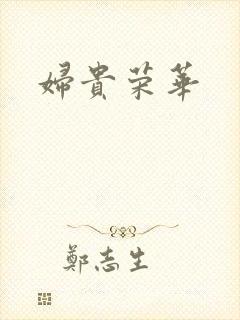 婦貴荣華
鄭志生